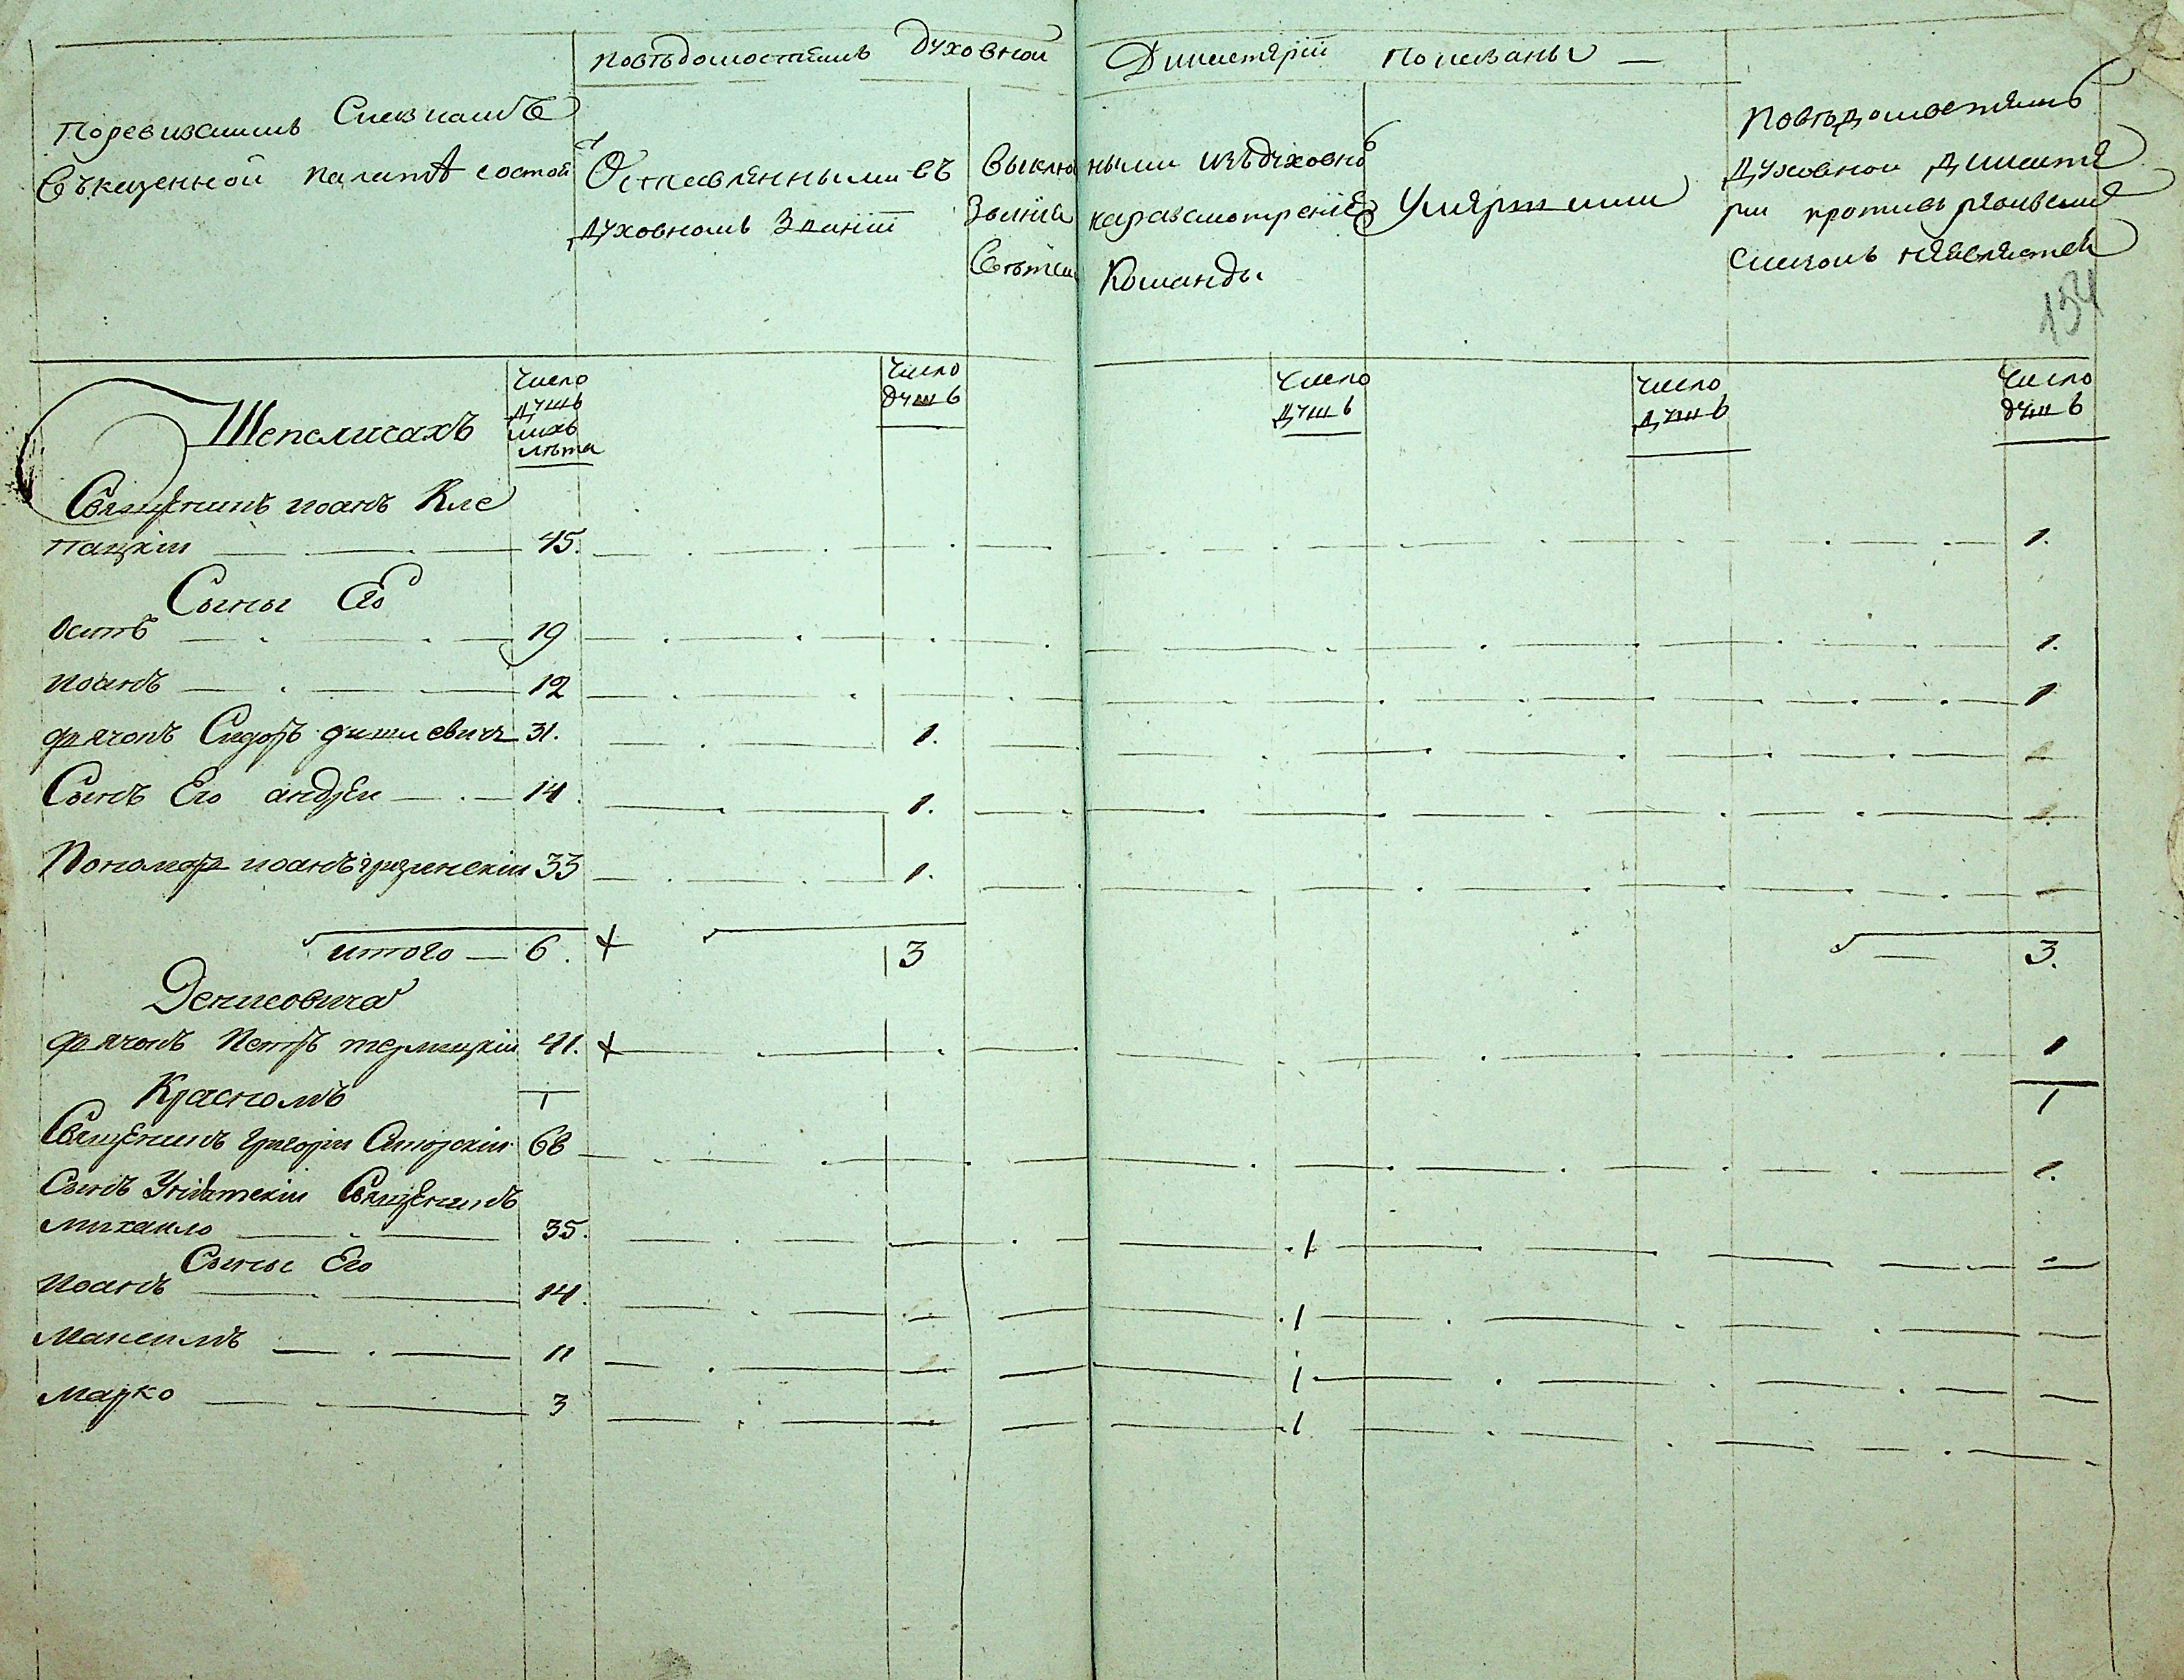 Повѣдомостямъ Духовной Дикастерїи Показаны —
Поревизскимъ Сказкамъ
Въказенной палатѣ состой
Оставленными въ
духовномъ Званїи
Выклю ными изъдуховнō
Званїя наразсмотренїе
Свѣтской Команды
Умершими
Повѣдомостямъ
Духовной Дикасте
рїи противъ ревизкиⷯ
Сказокъ неявляетсѧ
154
Шепелисахъ
Число
душъ
ихъ
лѣта
Число
душъ
Число
душъ
Число
душъ
Число
душъ
Священикъ иоанъ Кле
пацкїи — 45. 1.
Сыны Его
Осипъ — 19 1.
Иоанъ — 12 1
дячокъ Сидоръ 31. 1.
Сынъ Его андреи — 14. 1.
Пономаръ иоанъ грезинскїи 33 1.
итого — 6. 3 3.
Денисовича
дячокъ Петръ термецкїи 41. 1
Красномъ 1 1
Священикъ григорїи 68 1.
Сынъ Унїятскїи Священикъ
михаило — 35. 1
Сыны Его
Иоанъ — 14. 1
Максимъ — 11 1
Марко — 3 1